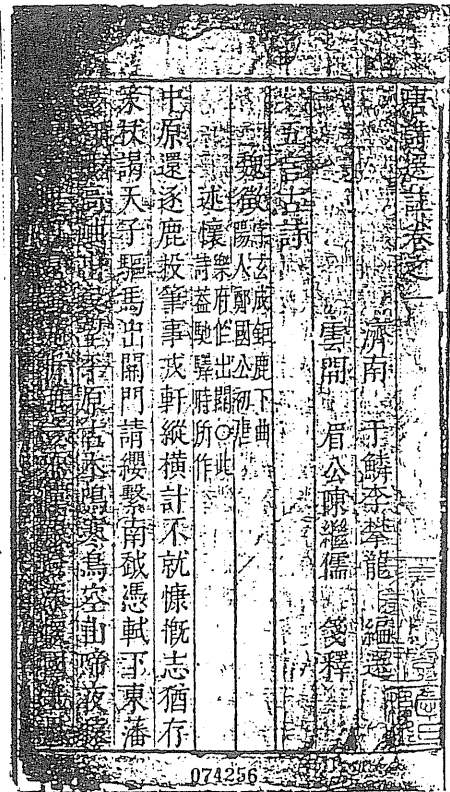 唐詩選註卷之一
濟南 于鱗李攀龍 編選
雲間 眉公陳繼儒 箋釋
五言古詩
魏徵 字玄成鉅鹿下曲
陽人鄭國公初唐
述懷 樂府作出關○此
詩蓋馳驛時所作
中原還逐鹿投筆事戎軒縱橫計不就慷慨志猶存
策杖謁天子驅馬出關門請纓繫南越憑軾下東藩
高岫出沒望平原古木鳴寒鳥空山啼夜猿
074256